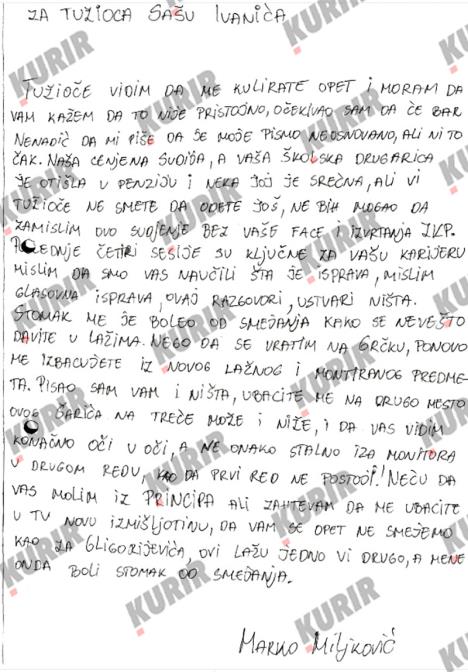 ZA TUŽIOCA SAŠU IVANIĆA
TUŽIOČE VIDIM DA ME KULIRATE OPET I MORAM DA
VAM KAŽEM DA TO NIJE PRISTOJNO, OČEKIVAO SAM DA ĆE BAR
NENADIĆ DA MI PIŠE DA JE MOJE PISMO NEOSNOVANO, ALI NI TO
ČAK. NAŠA CENJENA SUDIJA, A VAŠA ŠKOLSKA DRUGARICA
JE OTIŠLA U PENZIJU I NEKA JOJ JE SREĆNA, ALI VI
TUŽIOČE NE SMETE DA ODETE JOŠ, NE BIH MOGAO DA
ZAMISLIM OVO SUĐENJE BEZ VAŠE FACE I IZVRTANJA ZKP.
POSLEDNJE ČETIRI SESIJE SU KLJUČNE ZA VAŠU KARIJERU
MISLIM DA SMO VAS NAUČILI ŠTA JE ISPRAVA, MISLIM
GLASOVNA ISPRAVA, OVAJ RAZGOVORI, USTVARI NIŠTA.
STOMAK ME JE BOLEO OD SMEJANJA KAKO SE NEVEŠTO
DAVITE U LAŽIMA. NEGO DA SE VRATIM NA GRČKU, PONOVO
ME IZBACUJETE IZ NOVOG LAŽNOG I MONTIRANOG PREDME-
TA. PISAO SAM VAM I NIŠTA, UBACITE ME NA DRUGO MESTO
OVOG ŠARIĆA NA TREĆE MOŽE I NIŽE, I DA VAS VIDIM
KONAČNO OČI U OČI, A NE ONAKO STALNO IZA MONITORA
U DRUGOM REDU, KAO DA PRVI RED NE POSTOJI! NEĆU DA
VAS MOLIM IZ PRINCIPA ALI ZAHTEVAM DA ME UBACITE
U TU NOVU IZMIŠLJOTINU, DA VAM SE OPET NE SMEJEMO
KAO ZA GLIGORIJEVIĆA, OVI LAŽU JEDNO VI DRUGO, A MENE
ONDA BOLI STOMAK OD SMEJANJA.
MARKO MILJKOVIĆ
KURIR
KURIR
KURIR
KURIR
KURIR
KURIR
KURIR
KURIR
KURIR
KURIR
KURIR
KURIR